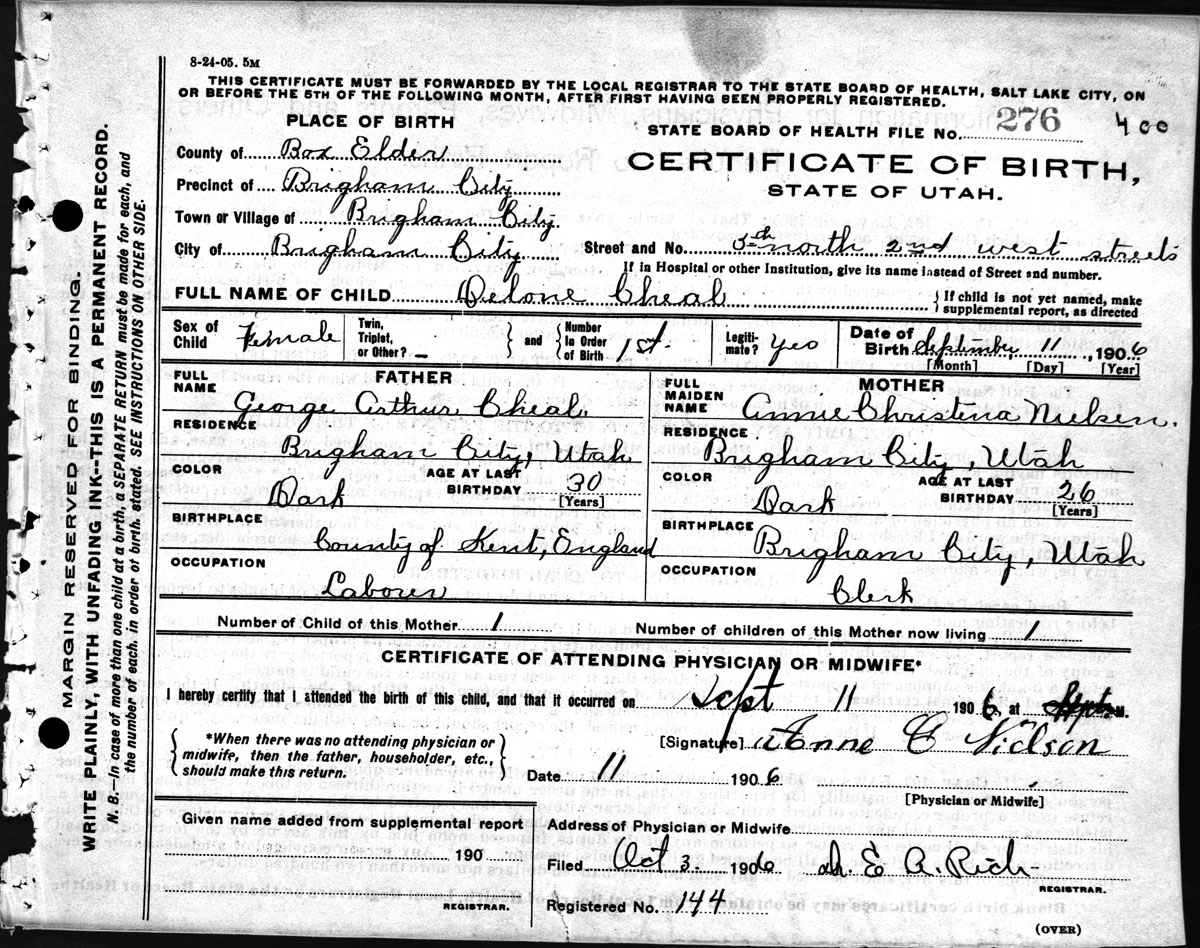 8-24-05. 5M
THIS CERTIFICATE MUST BE FORWARDED BY THE LOCAL REGISTRAR TO THE STATE BOARD OF HEALTH, SALT LAKE CITY, ON
OR BEFORE THE 5TH OF THE FOLLOWING MONTH, AFTER FIRST HAVING BEEN PROPERLY REGISTERED.
PLACE OF BIRTH
STATE BOARD OF HEALTH FILE No. 276 400
County of Box Elder
CERTIFICATE OF BIRTH,
STATE OF UTAH.
Precinct of Brigham City
Town or Village of Brigham City
City of Brigham City Street and No. 5th north 2nd west streets
If in Hospital or other Institution, give its name instead of Street and number.
FULL NAME OF CHILD Delone Cheal } If child is not yet named, make supplemental report, as directed
Sex of Child Female Twin, Triplet, or Other? — } and { Number in Order of Birth 1st. Legitimate? yes Date of Birth September 11, 1906
[Month] [Day] [Year]
FATHER
FULL NAME George Arthur Cheal
RESIDENCE Brigham City, Utah
COLOR Dark AGE AT LAST BIRTHDAY 30 [Years]
BIRTHPLACE County of Kent, England
OCCUPATION Laborer
MOTHER
FULL MAIDEN NAME Annie Christina Nielsen.
RESIDENCE Brigham City, Utah
COLOR Dark AGE AT LAST BIRTHDAY 26 [Years]
BIRTHPLACE Brigham City, Utah
OCCUPATION Clerk
Number of Child of this Mother 1 Number of children of this Mother now living 1
CERTIFICATE OF ATTENDING PHYSICIAN OR MIDWIFE*
I hereby certify that I attended the birth of this child, and that it occurred on Sept 11 1906, at M.
{ *When there was no attending physician or midwife, then the father, householder, etc., should make this return. }
[Signature] Anne C Nielson
Date 11 1906
[Physician or Midwife]
Given name added from supplemental report
190
REGISTRAR.
Address of Physician or Midwife
Filed Oct 3. 1906 E A. Rich
REGISTRAR.
Registered No. 144
(OVER)
MARGIN RESERVED FOR BINDING.
WRITE PLAINLY, WITH UNFADING INK--THIS IS A PERMANENT RECORD.
N. B.—In case of more than one child at a birth, a SEPARATE RETURN must be made for each, and
the number of each, in order of birth, stated. SEE INSTRUCTIONS ON OTHER SIDE.